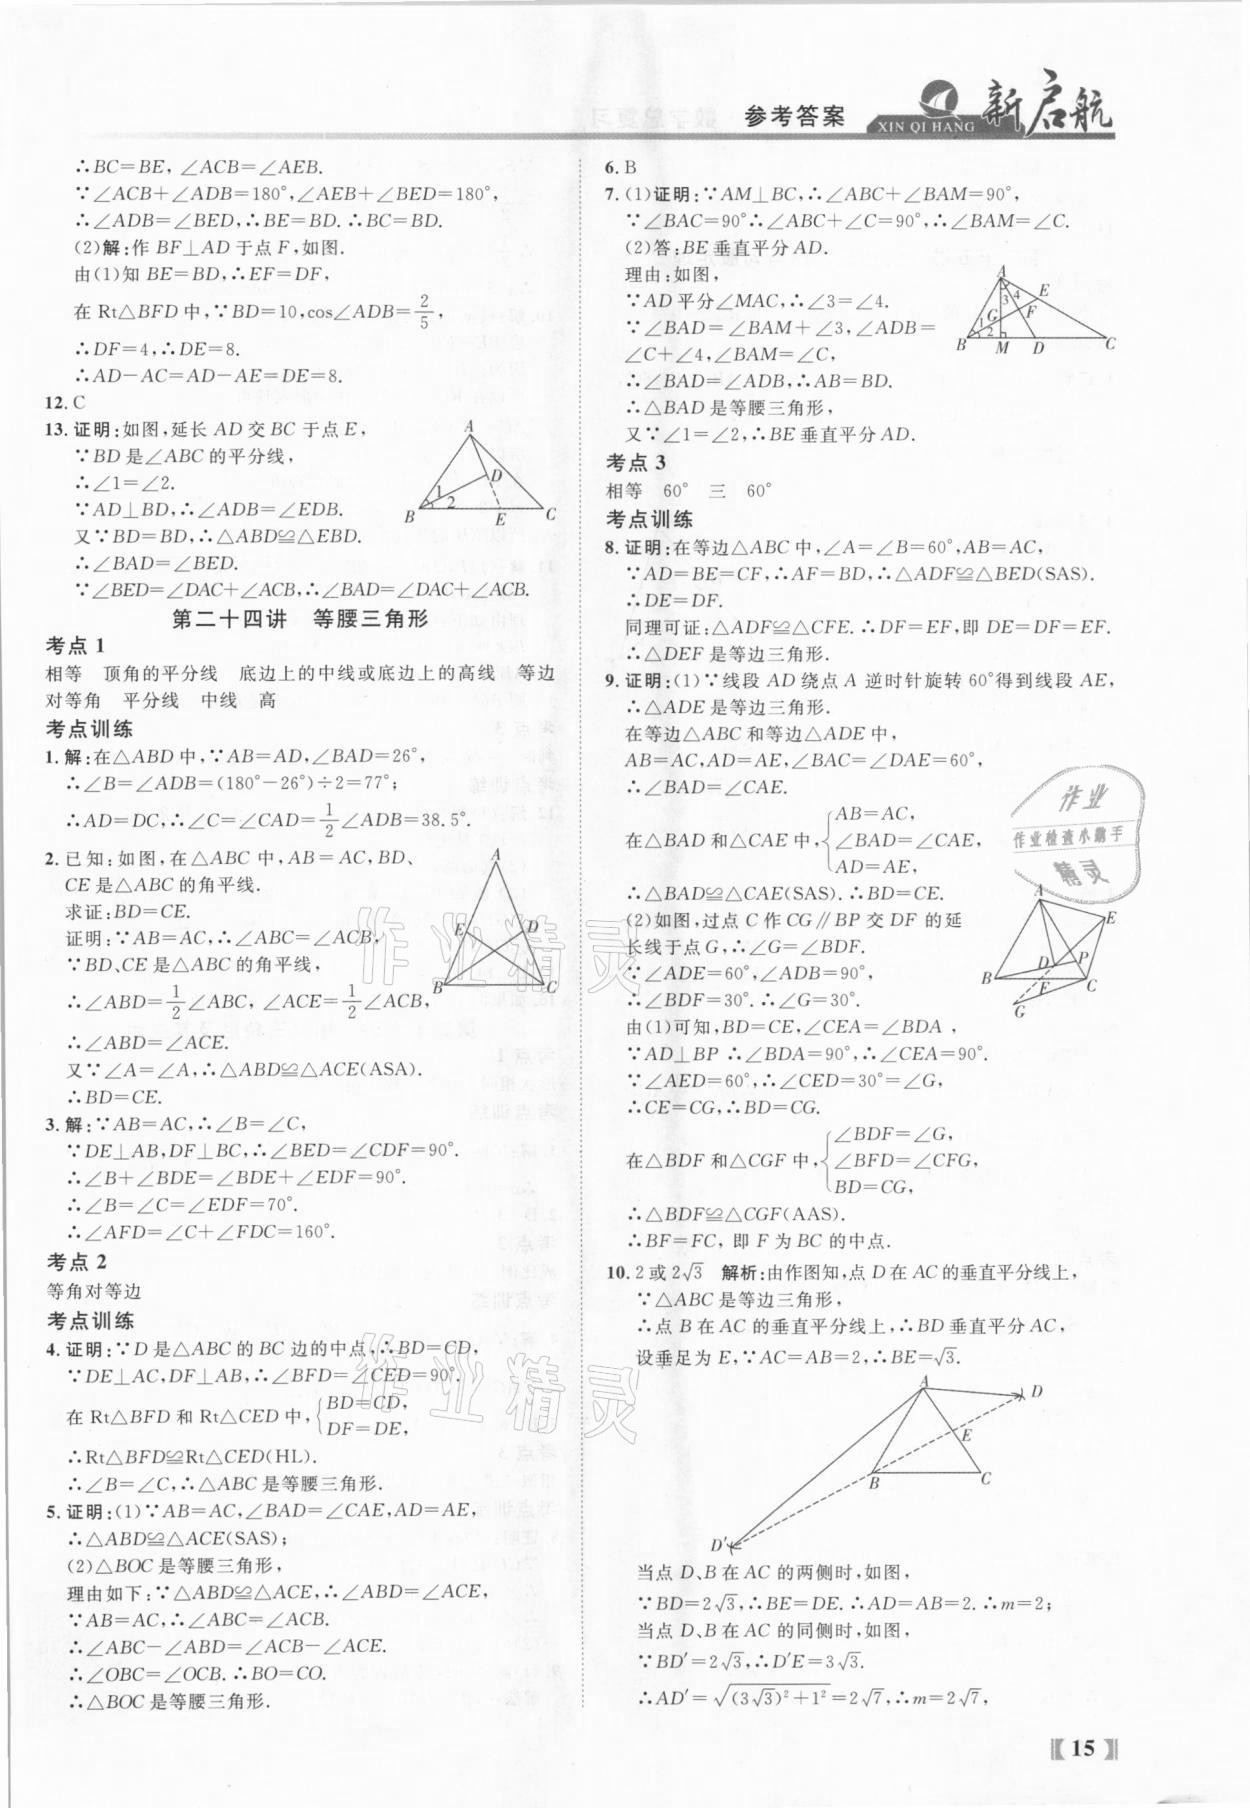 参考答案
XIN QI HANG
新启航
∴BC=BE，∠ACB=∠AEB.
∵∠ACB+∠ADB=180°,∠AEB+∠BED=180°,
∴∠ADB=∠BED,∴BE=BD.∴BC=BD.
(2)解:作 BF⊥AD 于点 F,如图.
由(1)知 BE=BD,∴EF=DF,
在 Rt△BFD 中,∵BD=10,cos∠ADB=2/5,
∴DF=4,∴DE=8.
∴AD-AC=AD-AE=DE=8.
12. C
13. 证明:如图,延长 AD 交 BC 于点 E,
∵BD 是∠ABC 的平分线,
∴∠1=∠2.
∵AD⊥BD,∴∠ADB=∠EDB.
又∵BD=BD,∴△ABD≌△EBD.
∴∠BAD=∠BED.
∵∠BED=∠DAC+∠ACB,∴∠BAD=∠DAC+∠ACB.
A
D
1
2
B
E
C
第二十四讲 等腰三角形
考点 1
相等 顶角的平分线 底边上的中线或底边上的高线 等边
对等角 平分线 中线 高
考点训练
1. 解:在△ABD 中,∵AB=AD,∠BAD=26°,
∴∠B=∠ADB=(180°-26°)÷2=77°;
∴AD=DC,∴∠C=∠CAD=1/2∠ADB=38.5°.
2. 已知:如图,在△ABC 中,AB=AC,BD、
CE 是△ABC 的角平线.
求证:BD=CE.
证明:∵AB=AC,∴∠B=∠ACB,
∵BD、CE 是△ABC 的角平线,
∴∠ABD=1/2∠ABC,∠ACE=1/2∠ACB,
∴∠ABD=∠ACE.
又∵∠A=∠A,∴△ABD≌△ACE(ASA).
∴BD=CE.
A
E
D
B
C
3. 解:∵AB=AC,∴∠B=∠C,
∵DE⊥AB,DF⊥BC,∴∠BED=∠CDF=90°.
∴∠B+∠BDE=∠BDE+∠EDF=90°.
∴∠B=∠C=∠EDF=70°.
∴∠AFD=∠C+∠FDC=160°.
考点 2
等角对等边
考点训练
4. 证明:∵D 是△ABC 的 BC 边的中点,∴BD=CD,
∵DE⊥AC,DF⊥AB,∴∠BFD=∠CED=90°.
在 Rt△BFD 和 Rt△CED 中,{BD=CD,
DF=DE,
∴Rt△BFD≌Rt△CED(HL).
∴∠B=∠C,∴△ABC 是等腰三角形.
5. 证明:(1)∵AB=AC,∠BAD=∠CAE,AD=AE,
∴△ABD≌△ACE(SAS);
(2)△BOC 是等腰三角形,
理由如下:∵△ABD≌△ACE,∴∠ABD=∠ACE,
∵AB=AC,∴∠ABC=∠ACB.
∴∠ABC-∠ABD=∠ACB-∠ACE.
∴∠OBC=∠OCB.∴BO=CO.
∴△BOC 是等腰三角形.
6. B
7. (1)证明:∵AM⊥BC,∴∠ABC+∠BAM=90°,
∵∠BAC=90°∴∠ABC+∠C=90°,∴∠BAM=∠C.
(2)答:BE 垂直平分 AD.
理由:如图,
∵AD 平分∠MAC,∴∠3=∠4.
∵∠BAD=∠BAM+∠3,∠ADB=
∠C+∠4,∠BAM=∠C,
∴∠BAD=∠ADB,∴AB=BD.
∴△BAD 是等腰三角形,
又∵∠1=∠2,∴BE 垂直平分 AD.
A
3 4
E
G
F
1
2
B
M
D
C
考点 3
相等 60° 三 60°
考点训练
8. 证明:在等边△ABC 中,∠A=∠B=60°,AB=AC,
∵AD=BE=CF,∴AF=BD,∴△ADF≌△BED(SAS).
∴DE=DF.
同理可证:△ADF≌△CFE.∴DF=EF,即 DE=DF=EF.
∴△DEF 是等边三角形.
9. 证明:(1)∵线段 AD 绕点 A 逆时针旋转 60°得到线段 AE,
∴△ADE 是等边三角形.
在等边△ABC 和等边△ADE 中,
AB=AC,AD=AE,∠BAC=∠DAE=60°,
∴∠BAD=∠CAE.
在△BAD 和△CAE 中,{AB=AC,
∠BAD=∠CAE,
AD=AE,
∴△BAD≌△CAE(SAS).∴BD=CE.
(2)如图,过点 C 作 CG∥BP 交 DF 的延
长线于点 G,∴∠G=∠BDF.
∵∠ADE=60°,∠ADB=90°,
∴∠BDF=30°.∴∠G=30°.
由(1)可知,BD=CE,∠CEA=∠BDA,
∵AD⊥BP ∴∠BDA=90°,∴∠CEA=90°.
∵∠AED=60°,∴∠CED=30°=∠G,
∴CE=CG,∴BD=CG.
在△BDF 和△CGF 中,{∠BDF=∠G,
∠BFD=∠CFG,
BD=CG,
∴△BDF≌△CGF(AAS).
∴BF=FC,即 F 为 BC 的中点.
A
E
D
P
B
F
C
G
10. 2 或 2√3 解析:由作图知,点 D 在 AC 的垂直平分线上,
∵△ABC 是等边三角形,
∴点 B 在 AC 的垂直平分线上,∴BD 垂直平分 AC,
设垂足为 E,∵AC=AB=2,∴BE=√3.
A
D
E
B
C
D′
当点 D、B 在 AC 的两侧时,如图,
∵BD=2√3,∴BE=DE.∴AD=AB=2.∴m=2;
当点 D、B 在 AC 的同侧时,如图,
∵BD′=2√3,∴D′E=3√3.
∴AD′=√((3√3)²+1²)=2√7,∴m=2√7,
作业
作业检查小助手
精灵
作业精灵
作业精灵
15